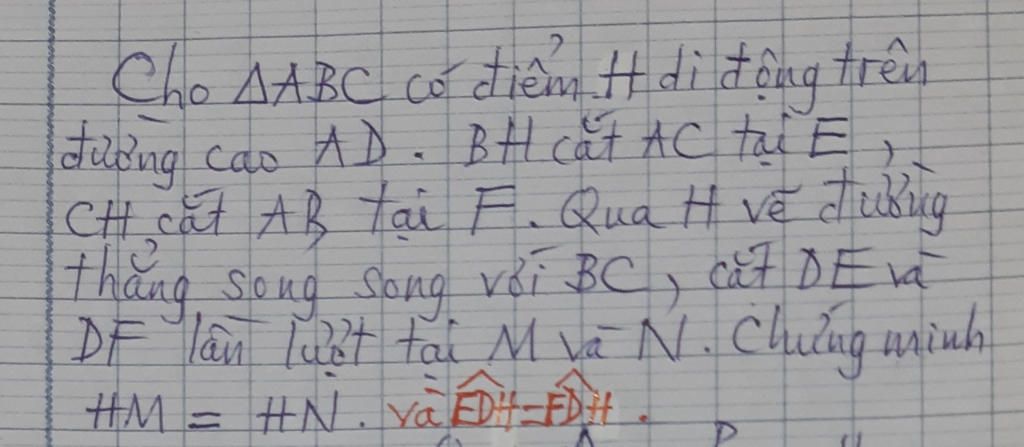 Cho ΔABC có điểm H di động trên
đường cao AD. BH cắt AC tại E,
CH cắt AB tại F. Qua H vẽ đường
thẳng song song với BC, cắt DE và
DF lần lượt tại M và N. Chứng minh
HM = HN. và \widehat{EDH} = \widehat{FDH}.